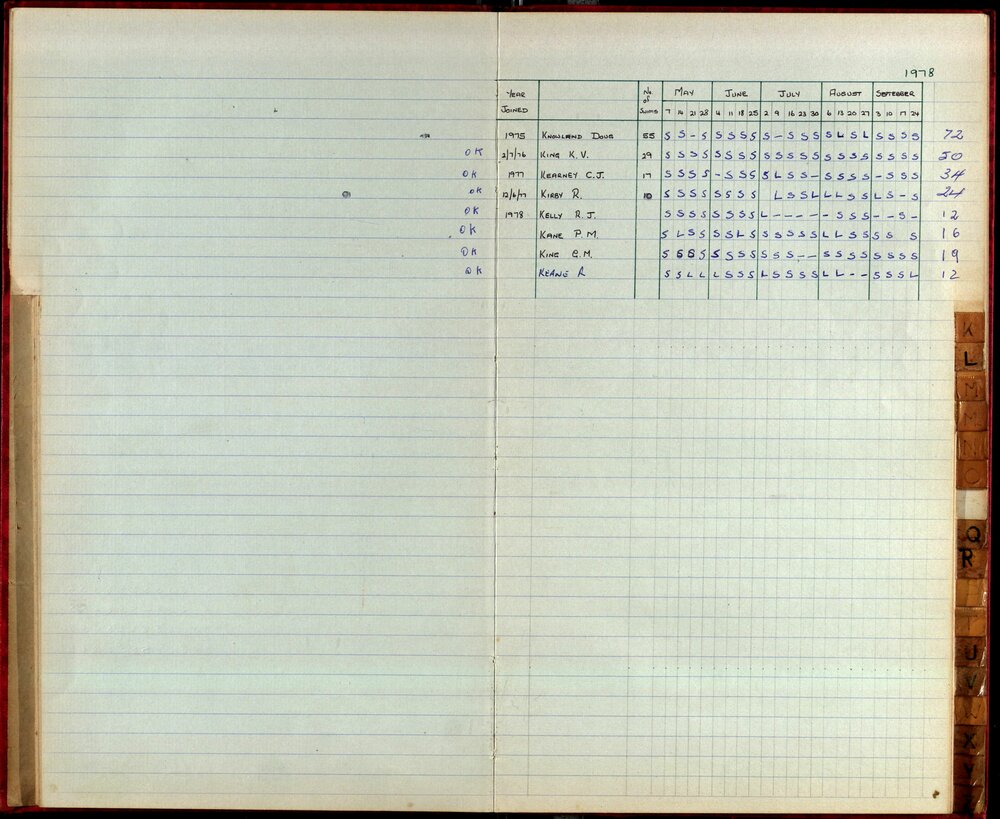 1978
YEAR JOINED No. of SWIMS MAY JUNE JULY AUGUST SEPTEMBER
7 14 21 28 4 11 18 25 2 9 16 23 30 6 13 20 27 3 10 17 24
1975 KNOWLAND DOUG 55 S S - S S S S S S - S S S S L S L S S S S 72
OK 2/7/76 KING K.V. 29 S S S S S S S S S S S S S S S S S S S S S 50
OK 1977 KEARNEY C.J. 17 S S S S - S S S S L S S - S S S S - S S S 34
OK 12/6/77 KIRBY R. 10 S S S S S S S S L S S L L L S S L S - S 24
OK 1978 KELLY R.J. S S S S S S S S L - - - - - S S S - - S - 12
OK KANE P.M. S L S S S S L S S S S S S L L S S S S S 16
OK KING G.M. S S S S S S S S S S S - - S S S S S S S S 19
OK KEANE R S S L L L S S S L S S S S L L - - S S S L 12
K
L
M
M
N
O
Q
R
T
U
V
W
X
Y
Z